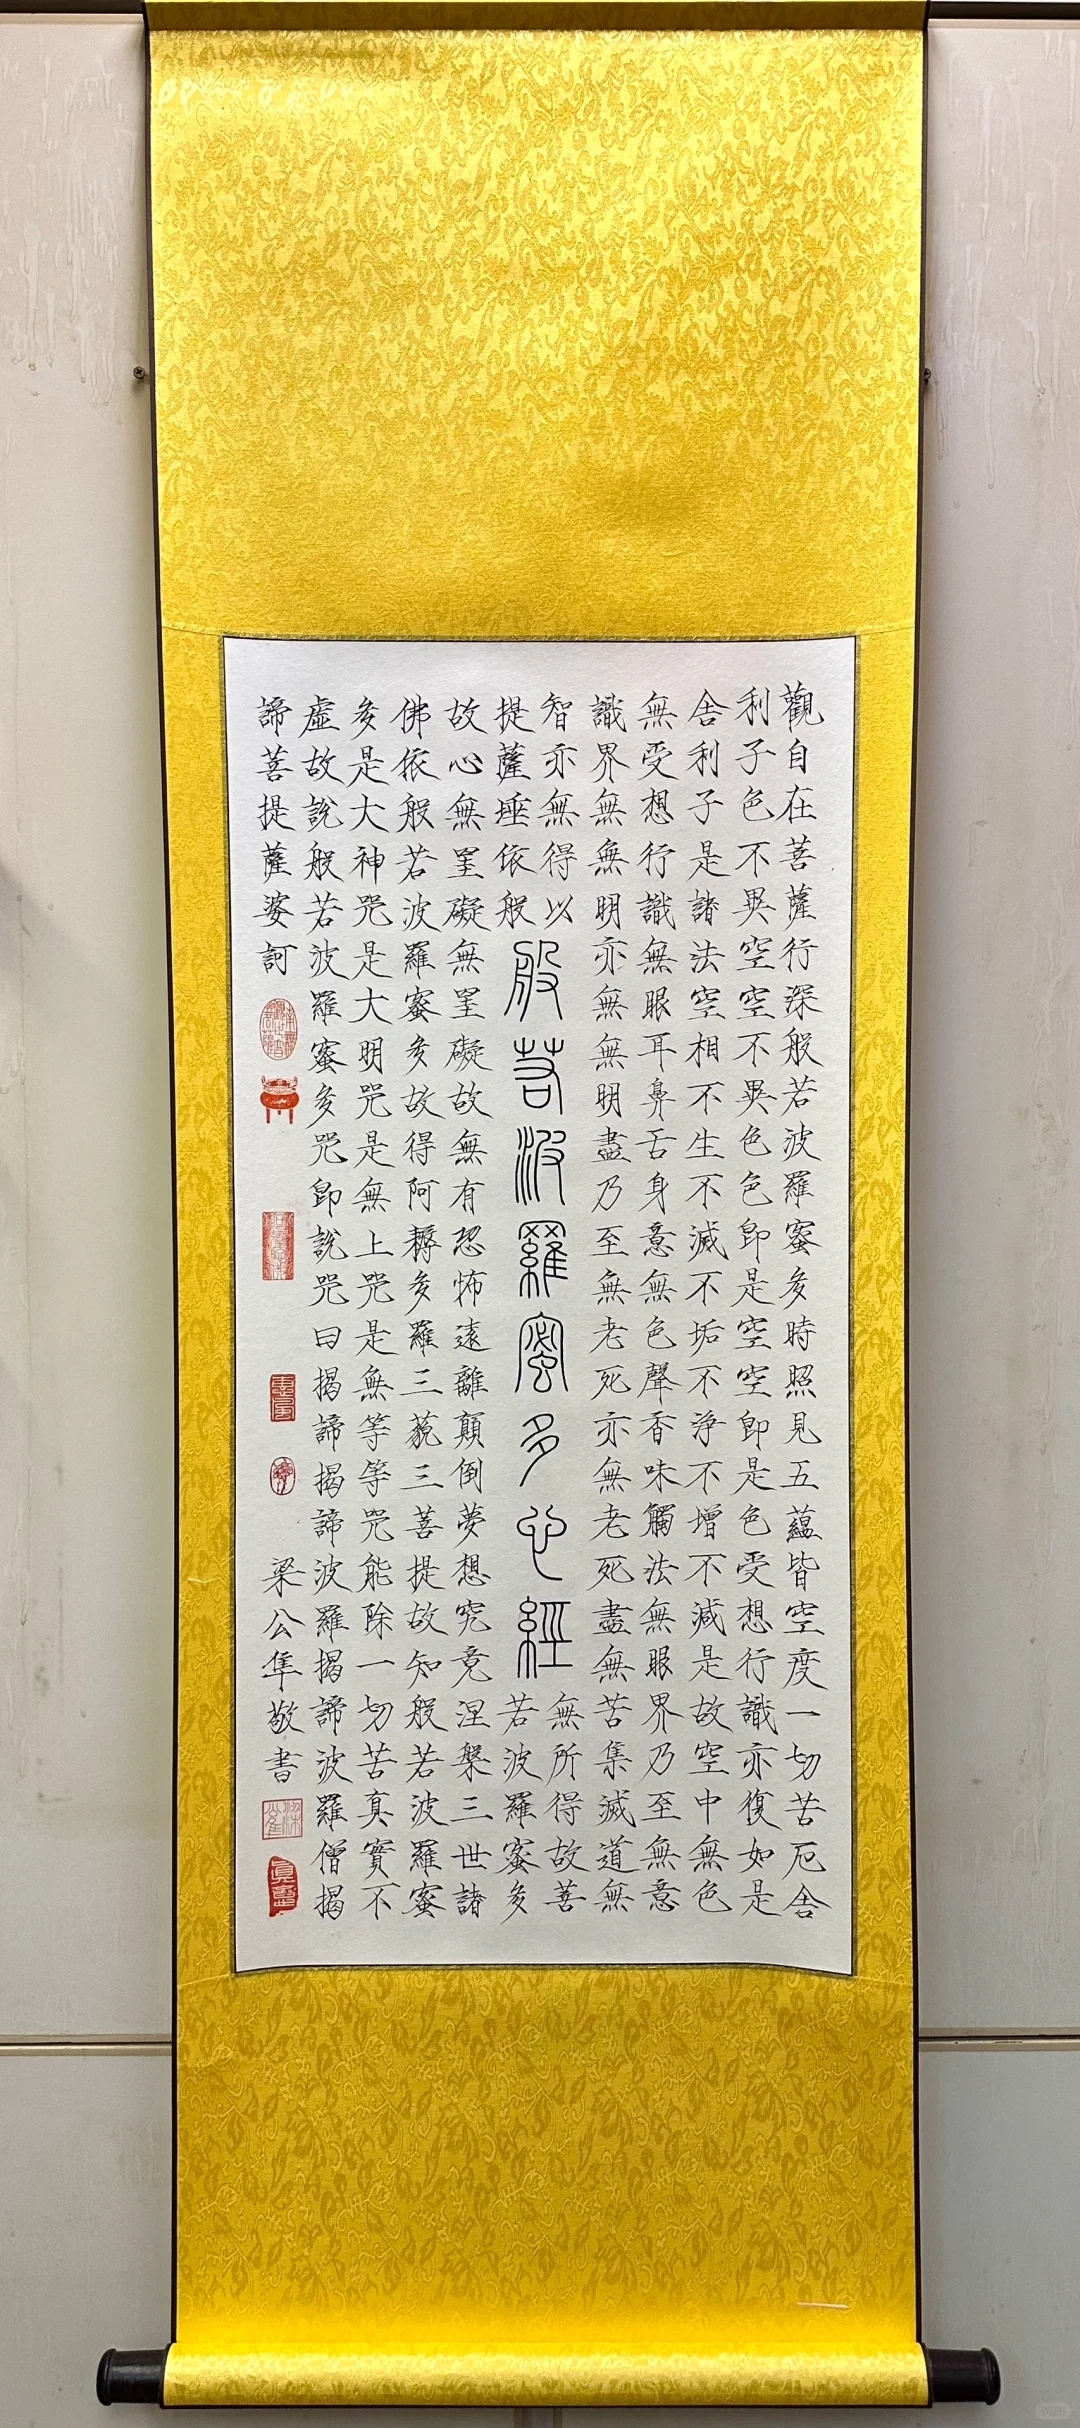 觀自在菩薩行深般若波羅蜜多時照見五蘊皆空度一切苦厄舍
利子色不異空空不異色色即是空空即是色受想行識亦復如是
舍利子是諸法空相不生不滅不垢不淨不增不減是故空中無色
無受想行識無眼耳鼻舌身意無色聲香味觸法無眼界乃至無意
識界無無明亦無無明盡乃至無老死亦無老死盡無苦集滅道無
智亦無得以無所得故菩
般若波羅蜜多心經
提薩埵依般若波羅蜜多
故心無罣礙無罣礙故無有恐怖遠離顛倒夢想究竟涅槃三世諸
佛依般若波羅蜜多故得阿耨多羅三藐三菩提故知般若波羅蜜
多是大神咒是大明咒是無上咒是無等等咒能除一切苦真實不
虛故說般若波羅蜜多咒即說咒曰揭諦揭諦波羅揭諦波羅僧揭
諦菩提薩婆訶
梁公隼敬書